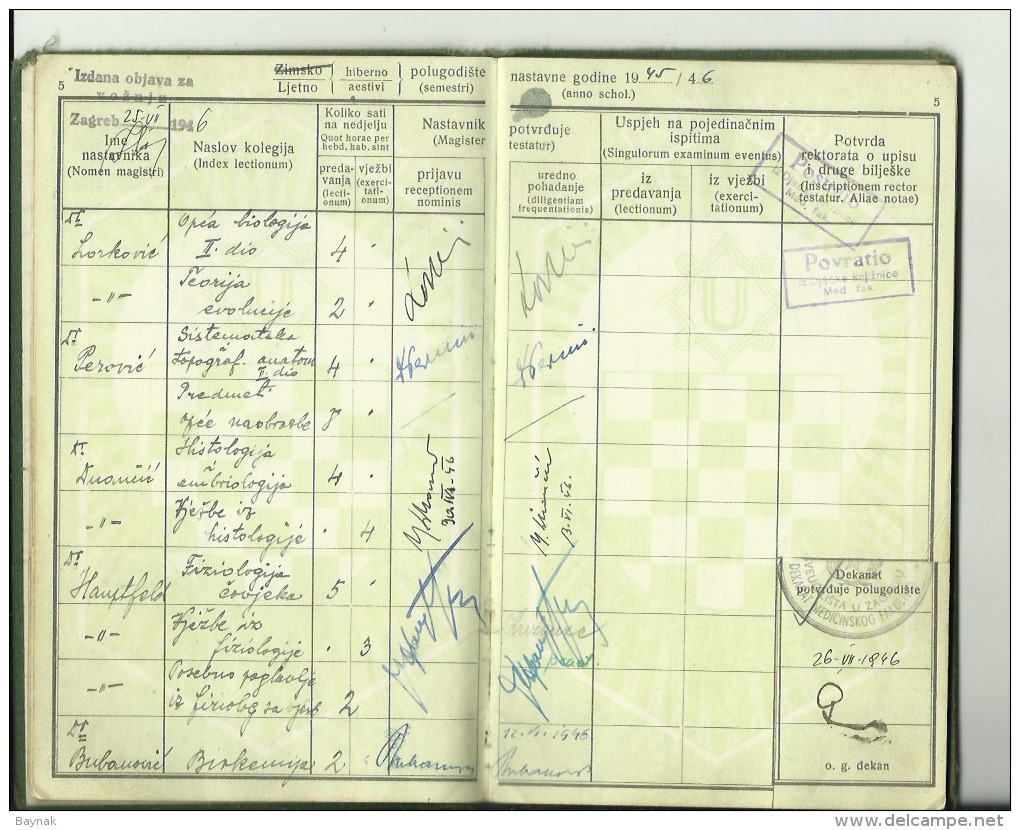 5
Izdana objava za
vožnju
Zagreb 25-VII 1946
Zimsko
Ljetno
hiberno
aestivi
polugodište
(semestri)
nastavne godine 1945/46
(anno schol.)
5
Ime
nastavnika
(Nomen magistri)
Naslov kolegija
(Index lectionum)
Koliko sati
na nedjelju
Quot horae per
hebd. hab. sint
preda-
vanja
(lecti-
onum)
vježbi
(exerci-
tati-
onum)
Nastavnik
(Magister
prijavu
receptionem
nominis
potvrđuje
testatur)
uredno
pohađanje
(diligentiam
frequentationis)
Uspjeh na pojedinačnim
ispitima
(Singulorum examinum eventus)
iz
predavanja
(lectionum)
iz vježbi
(exerci-
tationum)
Potvrda
rektorata o upisu
i druge bilješke
(Inscriptionem rector
testatur. Aliae notae)
Posudio
Med. fak.
Povratio
iz Djačke knjižnice
Med. fak.
U
Dr
Lorković
Opća biologija
II. dio
4
-"-
Teorija
evolucije
2
Dr
Perović
Sistematska
topograf. anatom
II. dio
4
Predmet
opće naobrazbe
Dr.
Duančić
Histologija
embriologija
4
-"-
Vježbe iz
histologije
4
VI-46
3. VI. 46.
Dr
Hauptfeld
Fiziologija
čovjeka
5
-"-
Vježbe iz
fiziologije
3
-"-
Posebno poglavlje
iz fiziolog sa vjež
2
Dr
Bubanović
Biokemija
2
1946
Dekanat
potvrđuje polugodište
DEKANAT MEDICINSKOG FAKUL
26-VII-1946
o. g. dekan
Baynak
delcampe.net